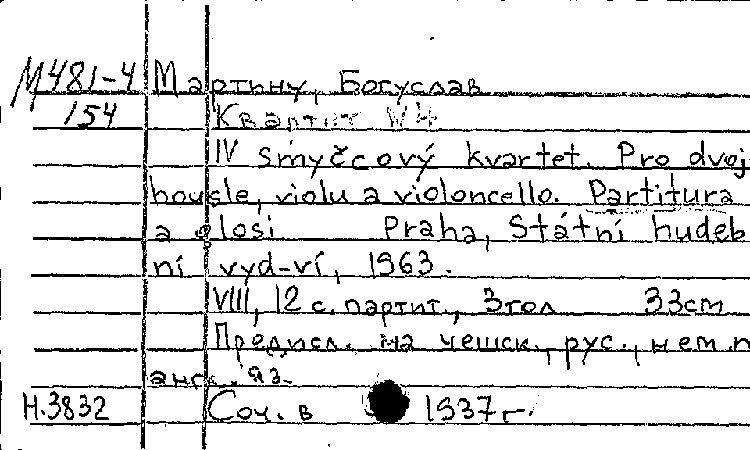 М481-4 Мартину, Богуслав
154 Квартит N4
IV smyčcový kvartet. Pro dvoj
housle, violu a violoncello. Partitura
a hlosi Praha, Státní hudeb
ní vyd-ví, 1963.
VIII, 12 с. партит., 3 гол 33 см
Предисл. на чешск., рус., нем.
англ. яз.
Н.3832 Соч. в 1937 г.